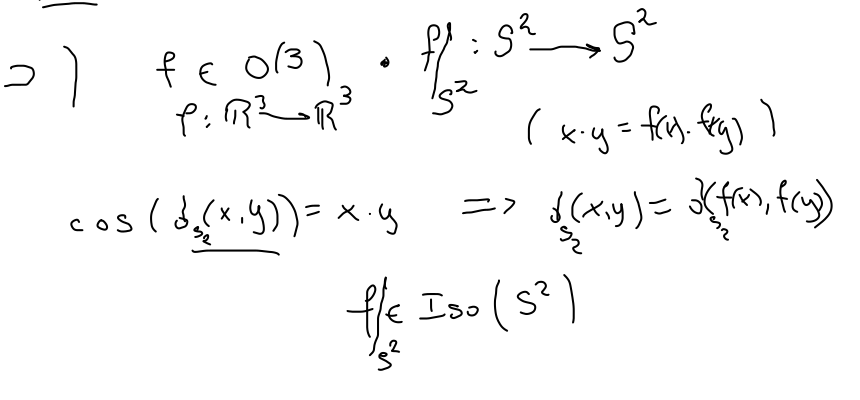 ⊃ ) f ∈ O(3) • f|_{S^2} : S^2 ⟶ S^2
f : ℝ^3 ⟶ ℝ^3
( x·y = f(x)·f(y) )
cos(d_{S_2}(x,y)) = x·y ⟹ d_{S_2}(x,y) = d_{S_2}(f(x), f(y))
f|_{S^2} ∈ Iso(S^2)